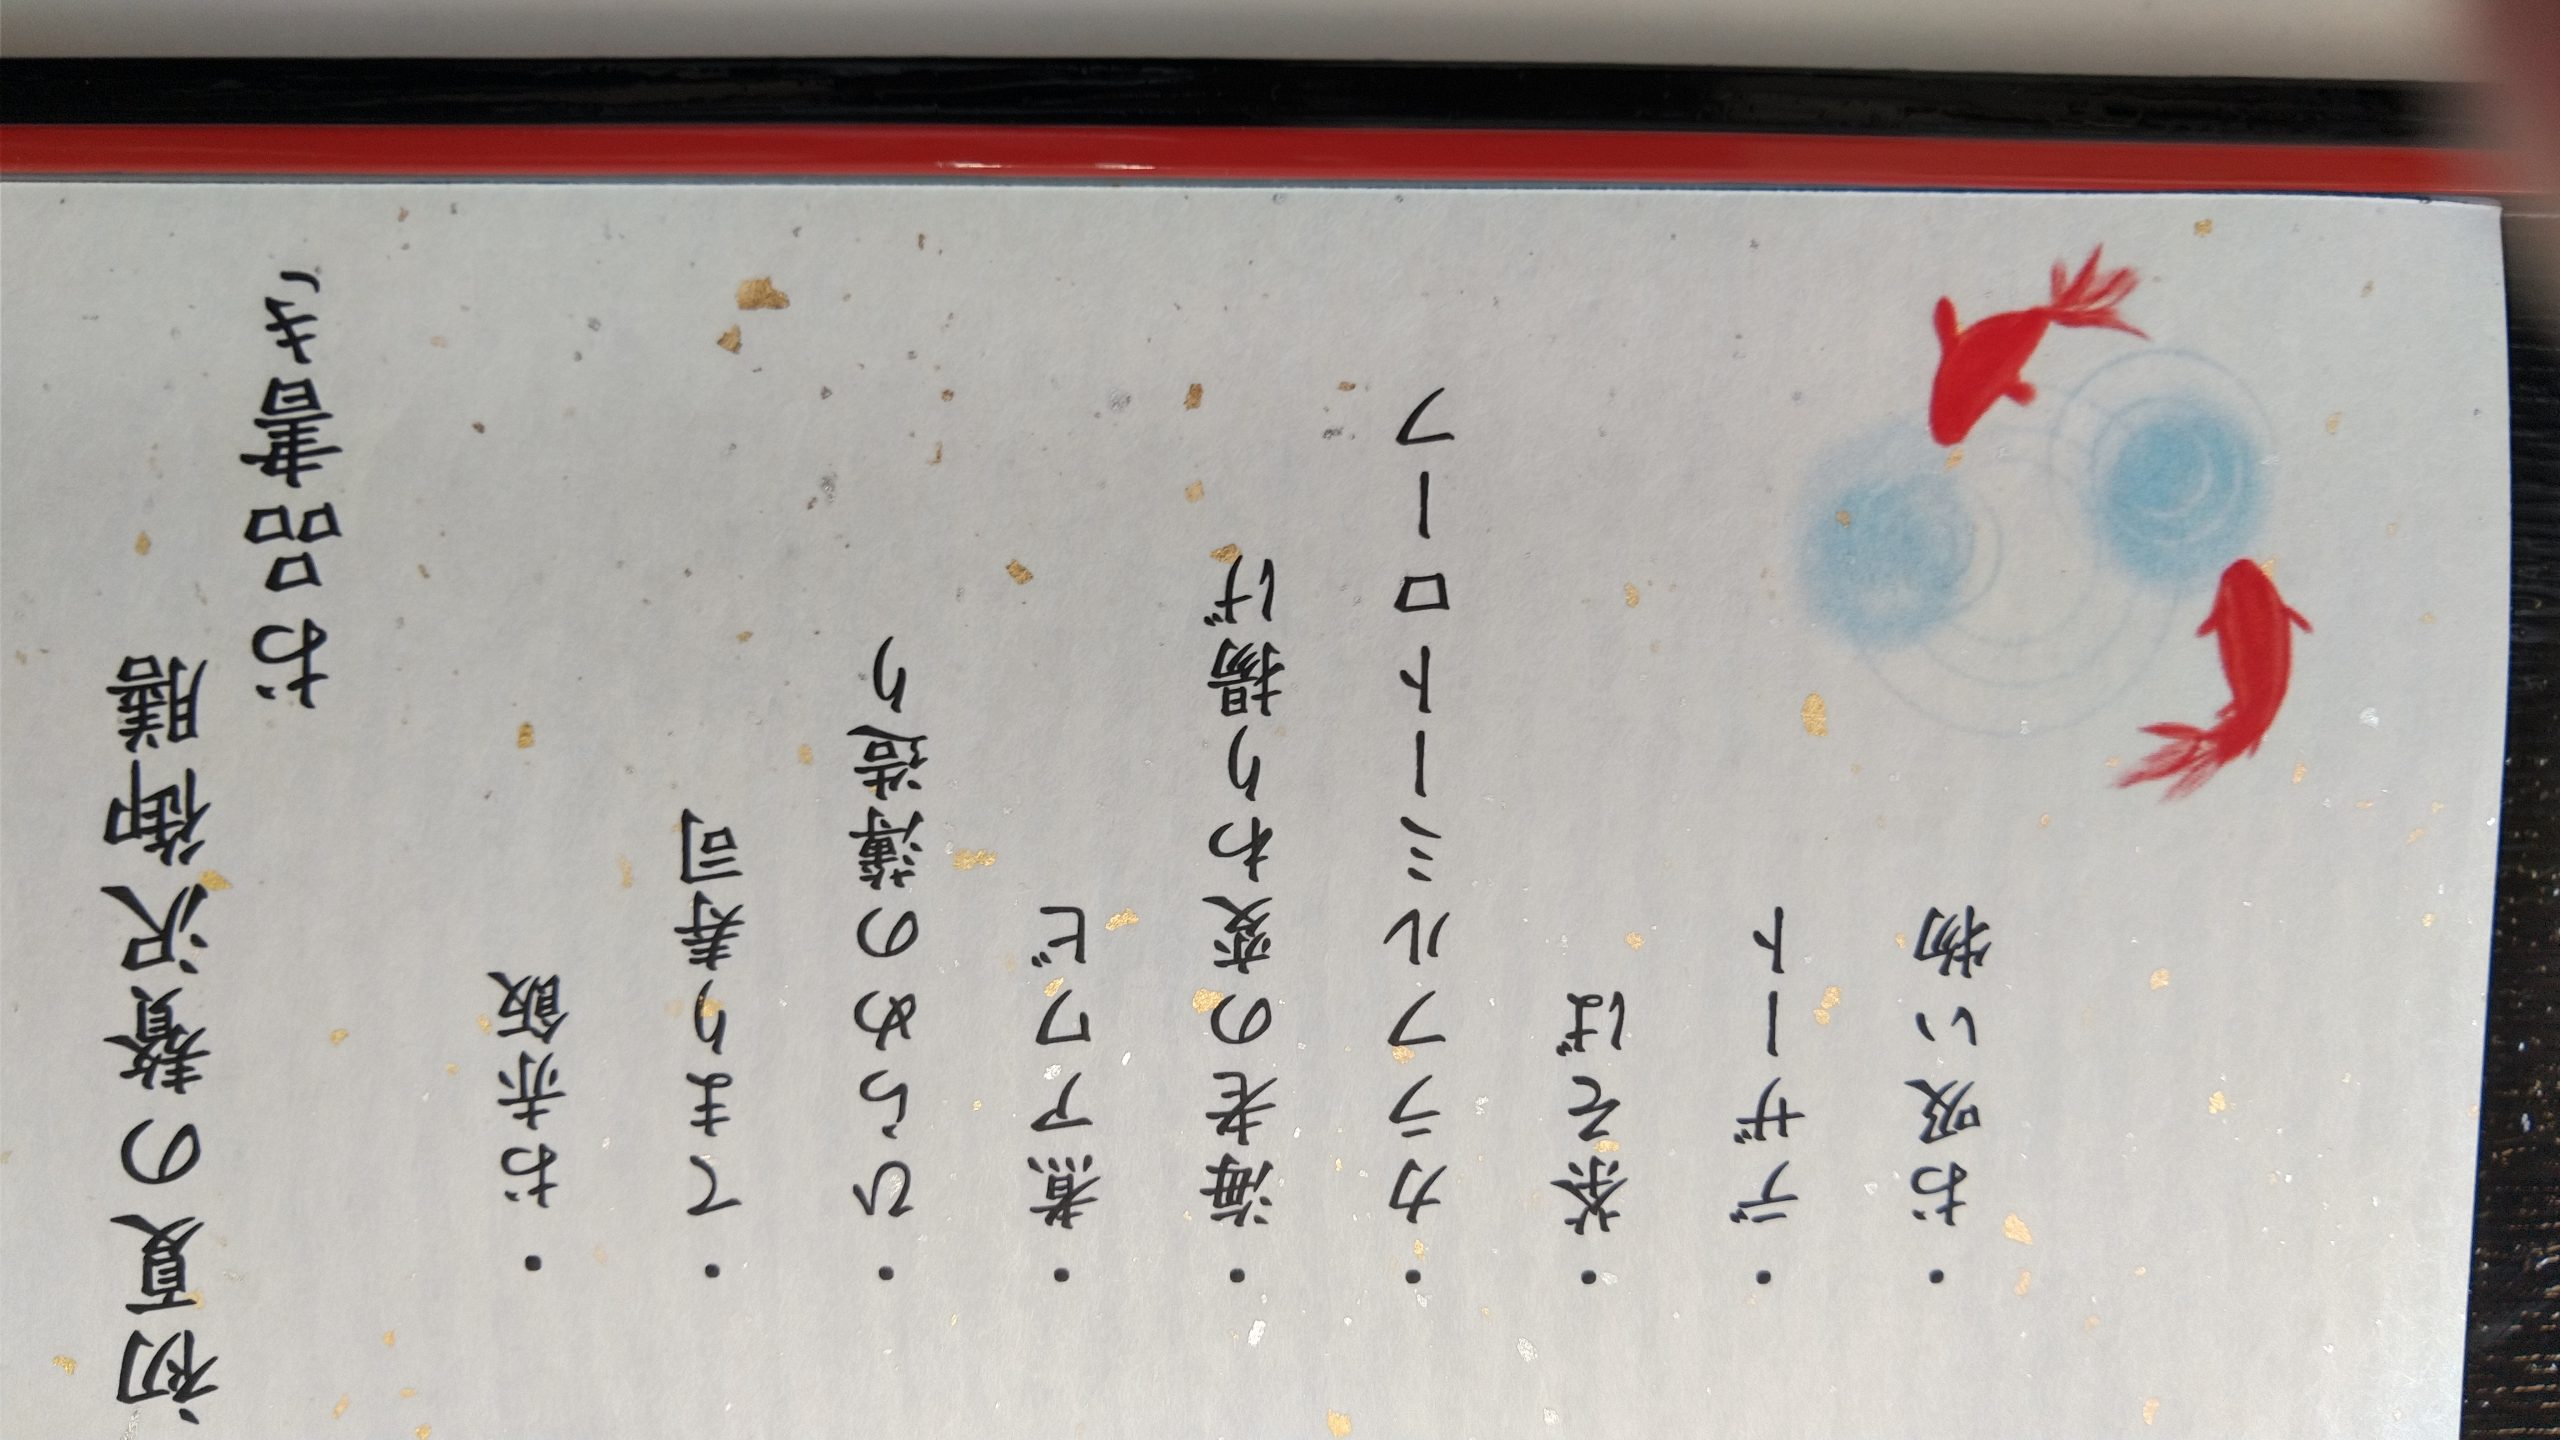 初夏の贅沢御膳
お品書き
・お赤飯
・てまり寿司
・ひらめの薄造り
・煮アワビ
・海老の変わり揚げ
・カラフルミートローフ
・茶そば
・デザート
・お吸い物